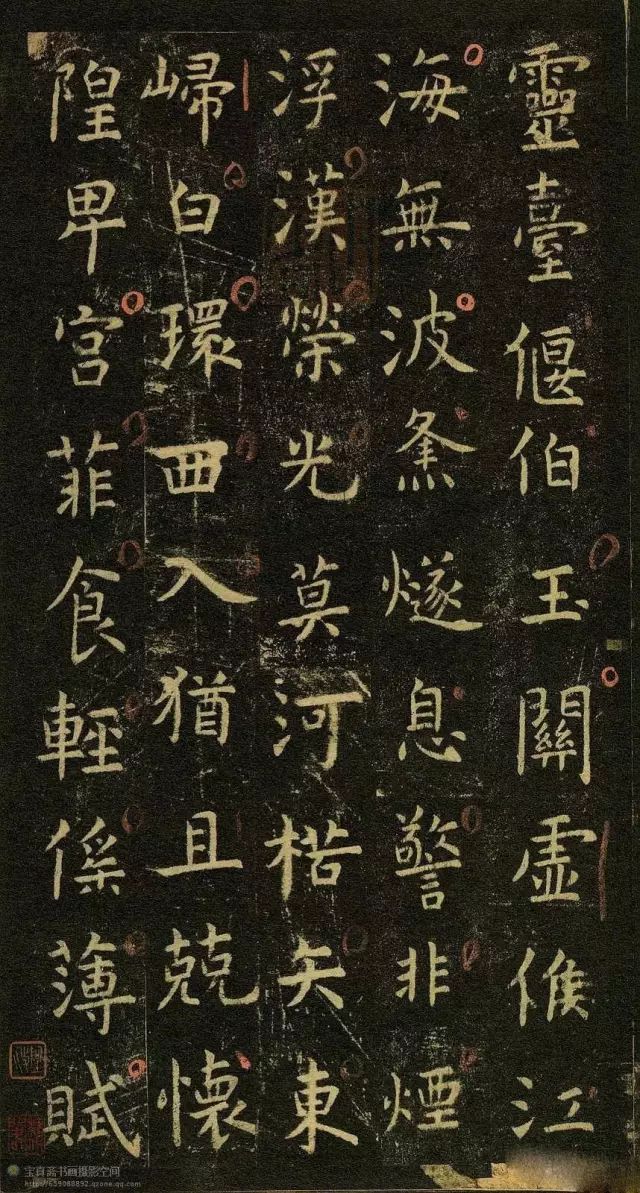 靈臺偃伯玉關虛候江
海無波烽燧息警非煙
浮漢榮光莫河楛矢東
歸白環西入猶且兢懷
隍卑宮菲食輕傜薄賦
宝真斋书画摄影空间
http://659088892.qzone.qq.com